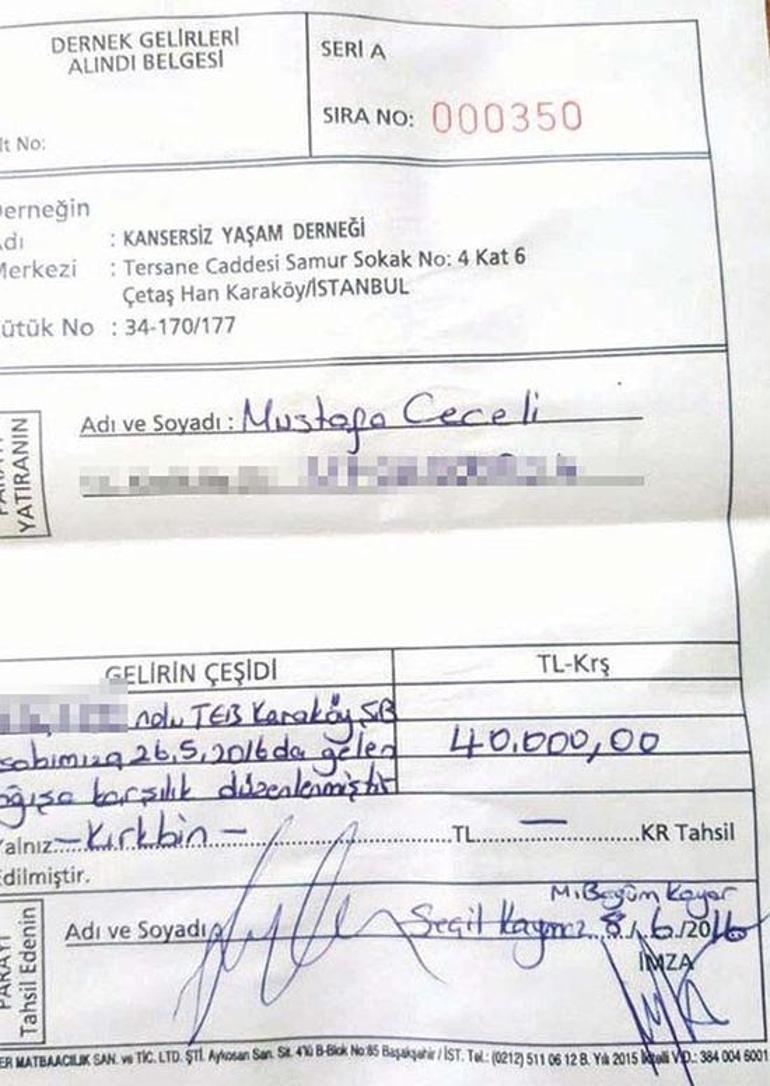 DERNEK GELİRLERİ
ALINDI BELGESİ
SERİ A
SIRA NO: 000350
lt No:
erneğin
dı : KANSERSİZ YAŞAM DERNEĞİ
Merkezi : Tersane Caddesi Samur Sokak No: 4 Kat 6
Çetaş Han Karaköy/İSTANBUL
ütük No : 34-170/177
YATIRANIN
Adı ve Soyadı : Mustafa Ceceli
GELİRİN ÇEŞİDİ
TL-Krş
nolu TEB Karaköy ŞB
sabımıza 26.5.2016 da gelen
40.000,00
ağışa karşılık düzenlenmiştir
Yalnız - Kırkbin - TL — KR Tahsil
Edilmiştir.
PARAYI
Tahsil Edenin
M. Begüm Kayar
Adı ve Soyadı Seçil Kaymaz 8/6/2016
İMZA
ER MATBAACILIK SAN. ve TİC. LTD. ŞTİ. Aykosan San. Sit. 4'lü B-Blok No:85 Başakşehir / İST. Tel.: (0212) 511 06 12 B. Yılı 2015 İkitelli V.D.: 384 004 6001